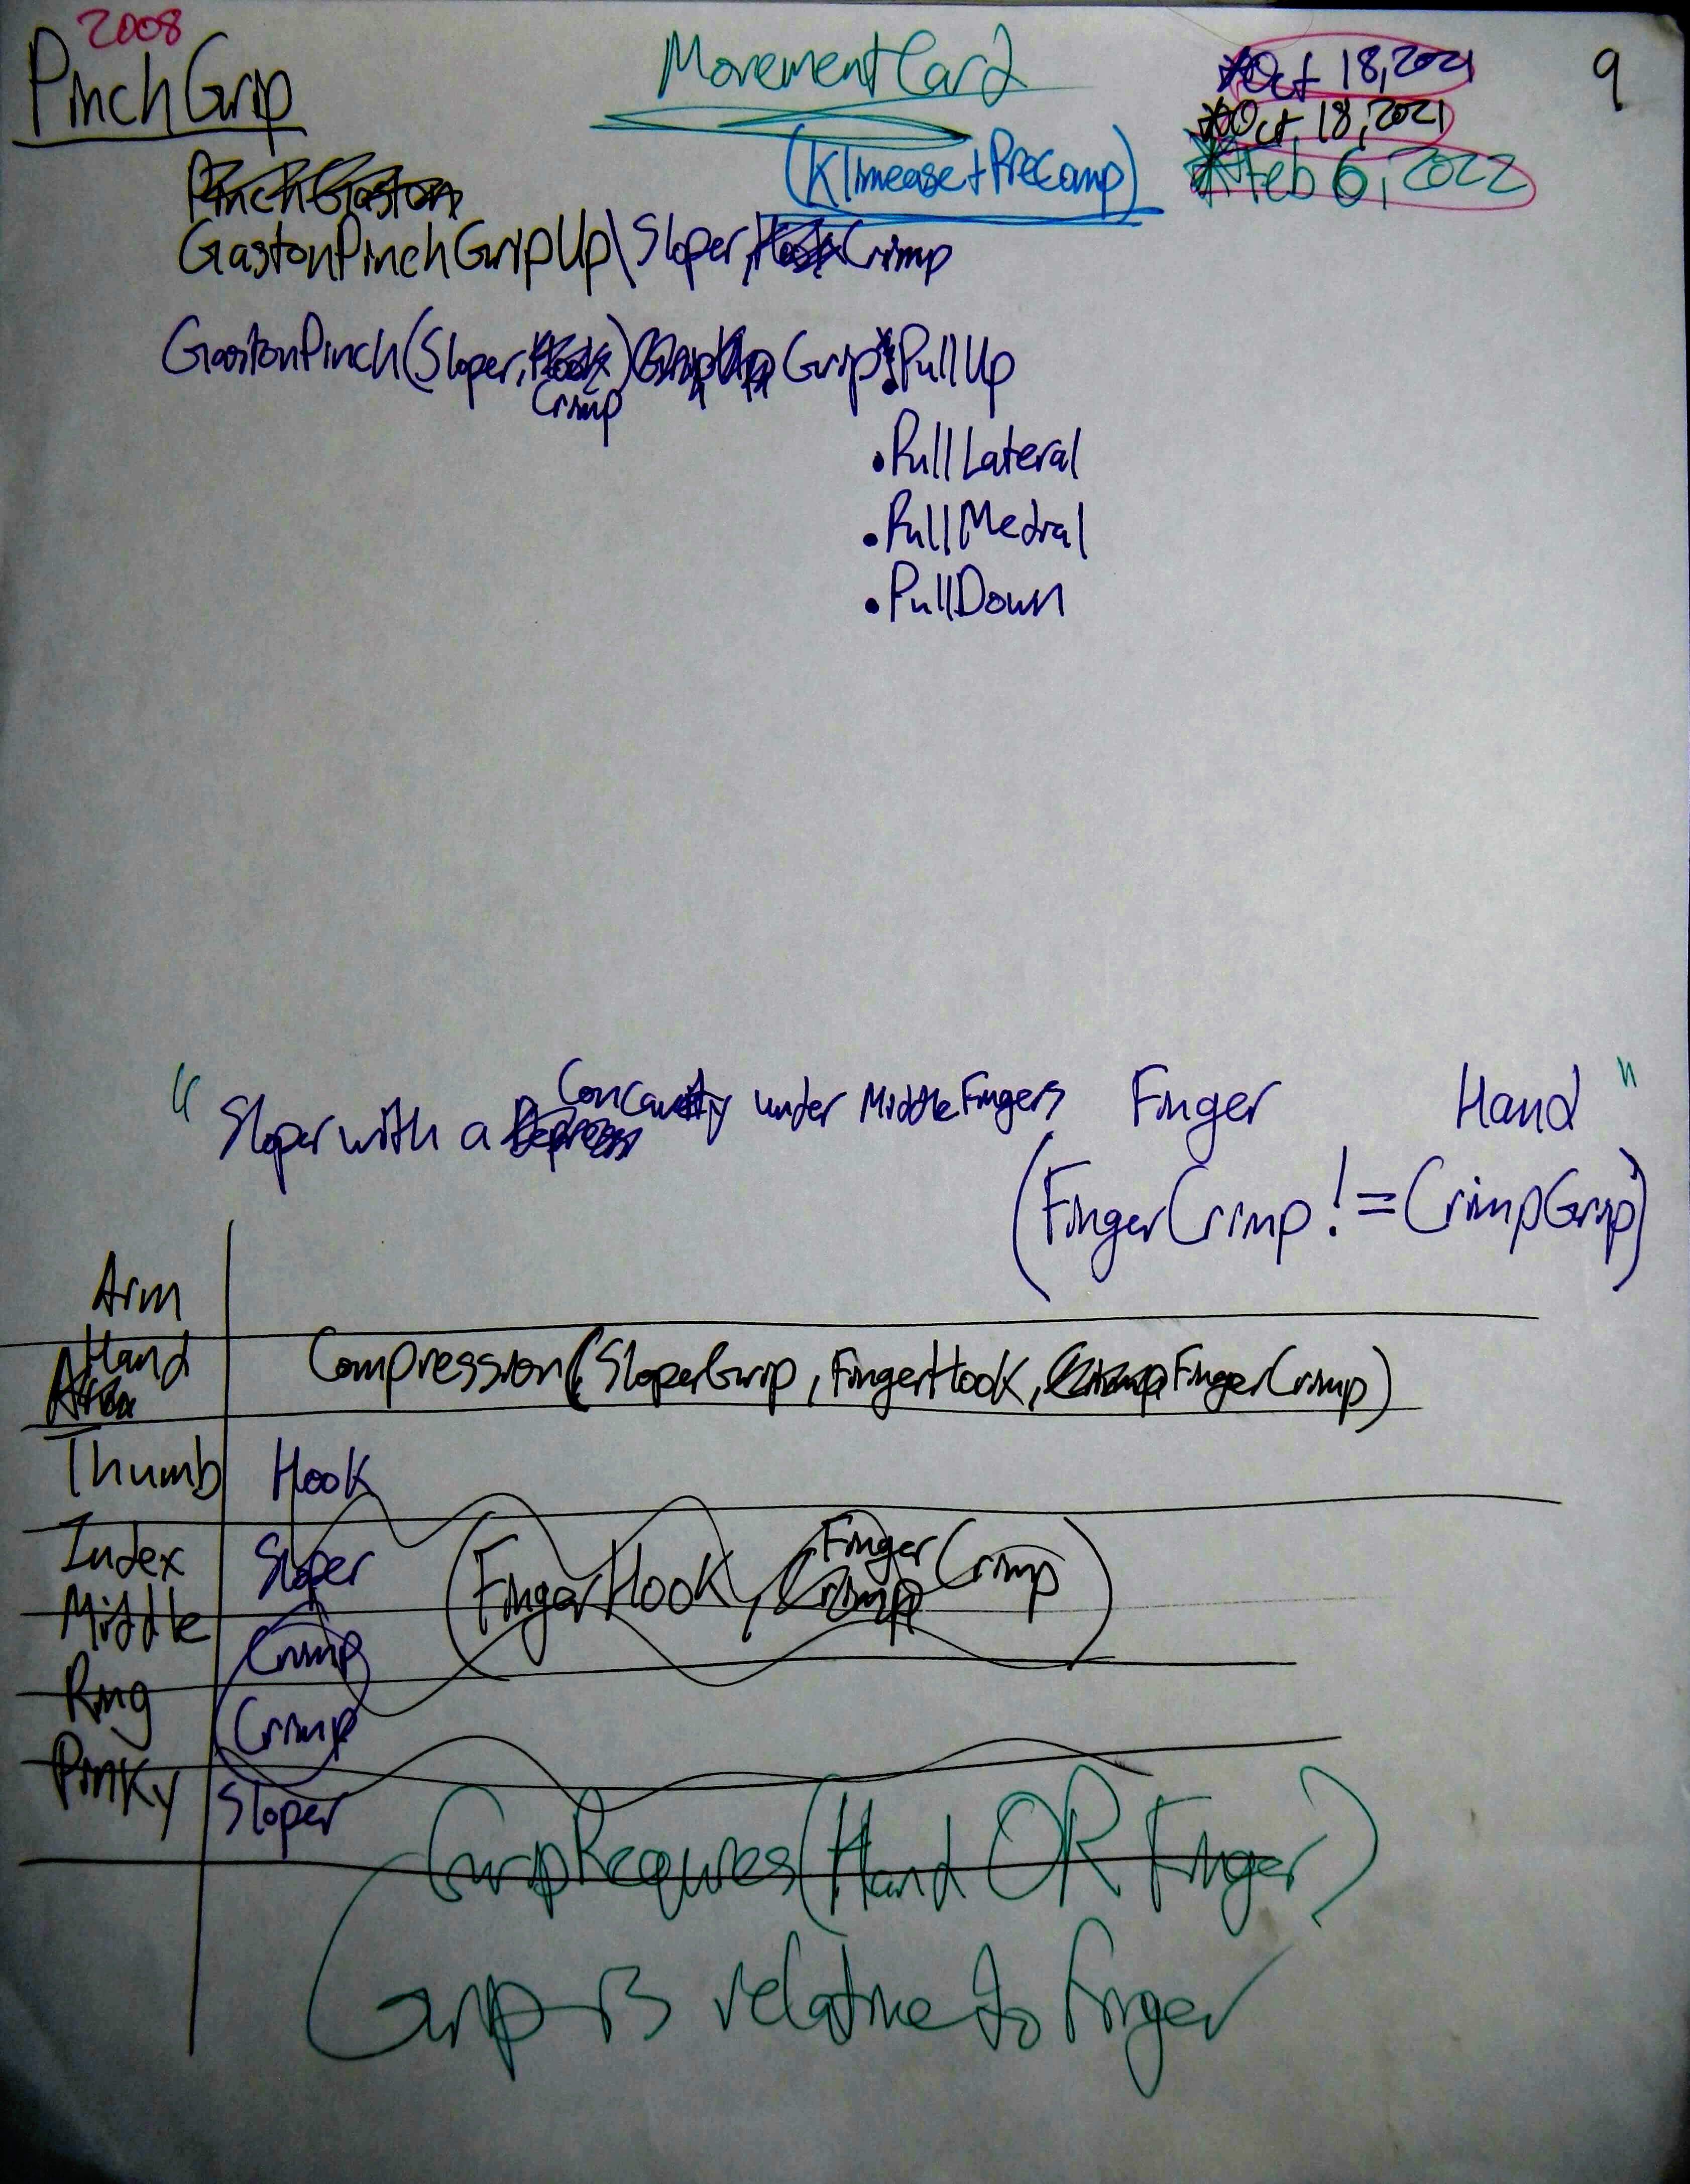 2008
PinchGrip
MovementCard
(Klimease+PreComp)
*Oct 18, 2021
*Oct 18, 2021
*Feb 6, 2022
9
PinchGaston
GastonPinchGripUp\Sloper, Hook Crimp
GastonPinch(Sloper, Hook) GripUp Grip: PullUp
Crimp
• PullLateral
• PullMedial
• PullDown
" Sloper with a Depress Concavity under MiddleFingers Finger Hand "
(FingerCrimp != CrimpGrip)
Arm
Hand Compression(SloperGrip, FingerHook, Crimp FingerCrimp)
Thumb Hook
Index Sloper (FingerHook, Crimp FingerCrimp)
Middle Crimp
Ring Crimp
Pinky Sloper
GripRequires(Hand OR Finger)
Grip is relative to finger